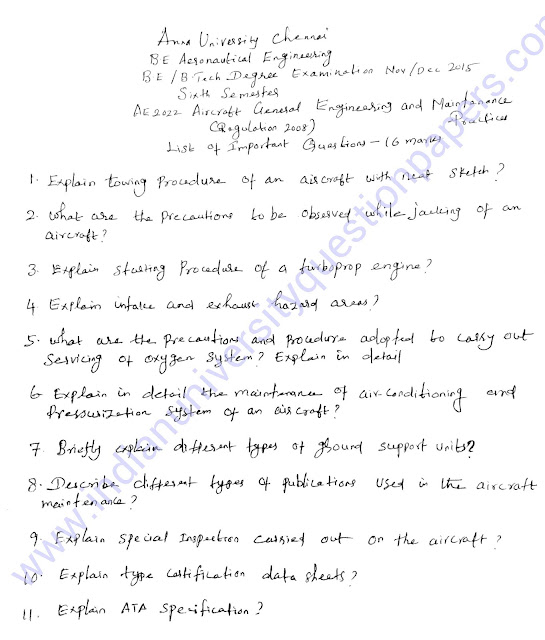 Anna University Chennai
BE Aeronautical Engineering
BE/B Tech Degree Examination Nov/Dec 2015
Sixth Semester
AE2022 Aircraft General Engineering and Maintenance
Practices
(Regulation 2008)
List of Important Questions - 16 marks
1. Explain towing Procedure of an aircraft with neat sketch?
2. What are the precautions to be observed while jacking of an
aircraft?
3. Explain starting Procedure of a turboprop engine?
4 Explain intake and exhaust hazard areas?
5. What are the precautions and procedure adopted to carry out
servicing of oxygen system? Explain in detail
6 Explain in detail the maintenance of air-conditioning and
Pressurization system of an aircraft?
7. Briefly explain different types of ground support units?
8. Describe different types of publications used in the aircraft
maintenance?
9. Explain special Inspection carried out on the aircraft?
10. Explain type certification data sheets?
11. Explain ATA Specification?
www.indianuniversityquestionpapers.com